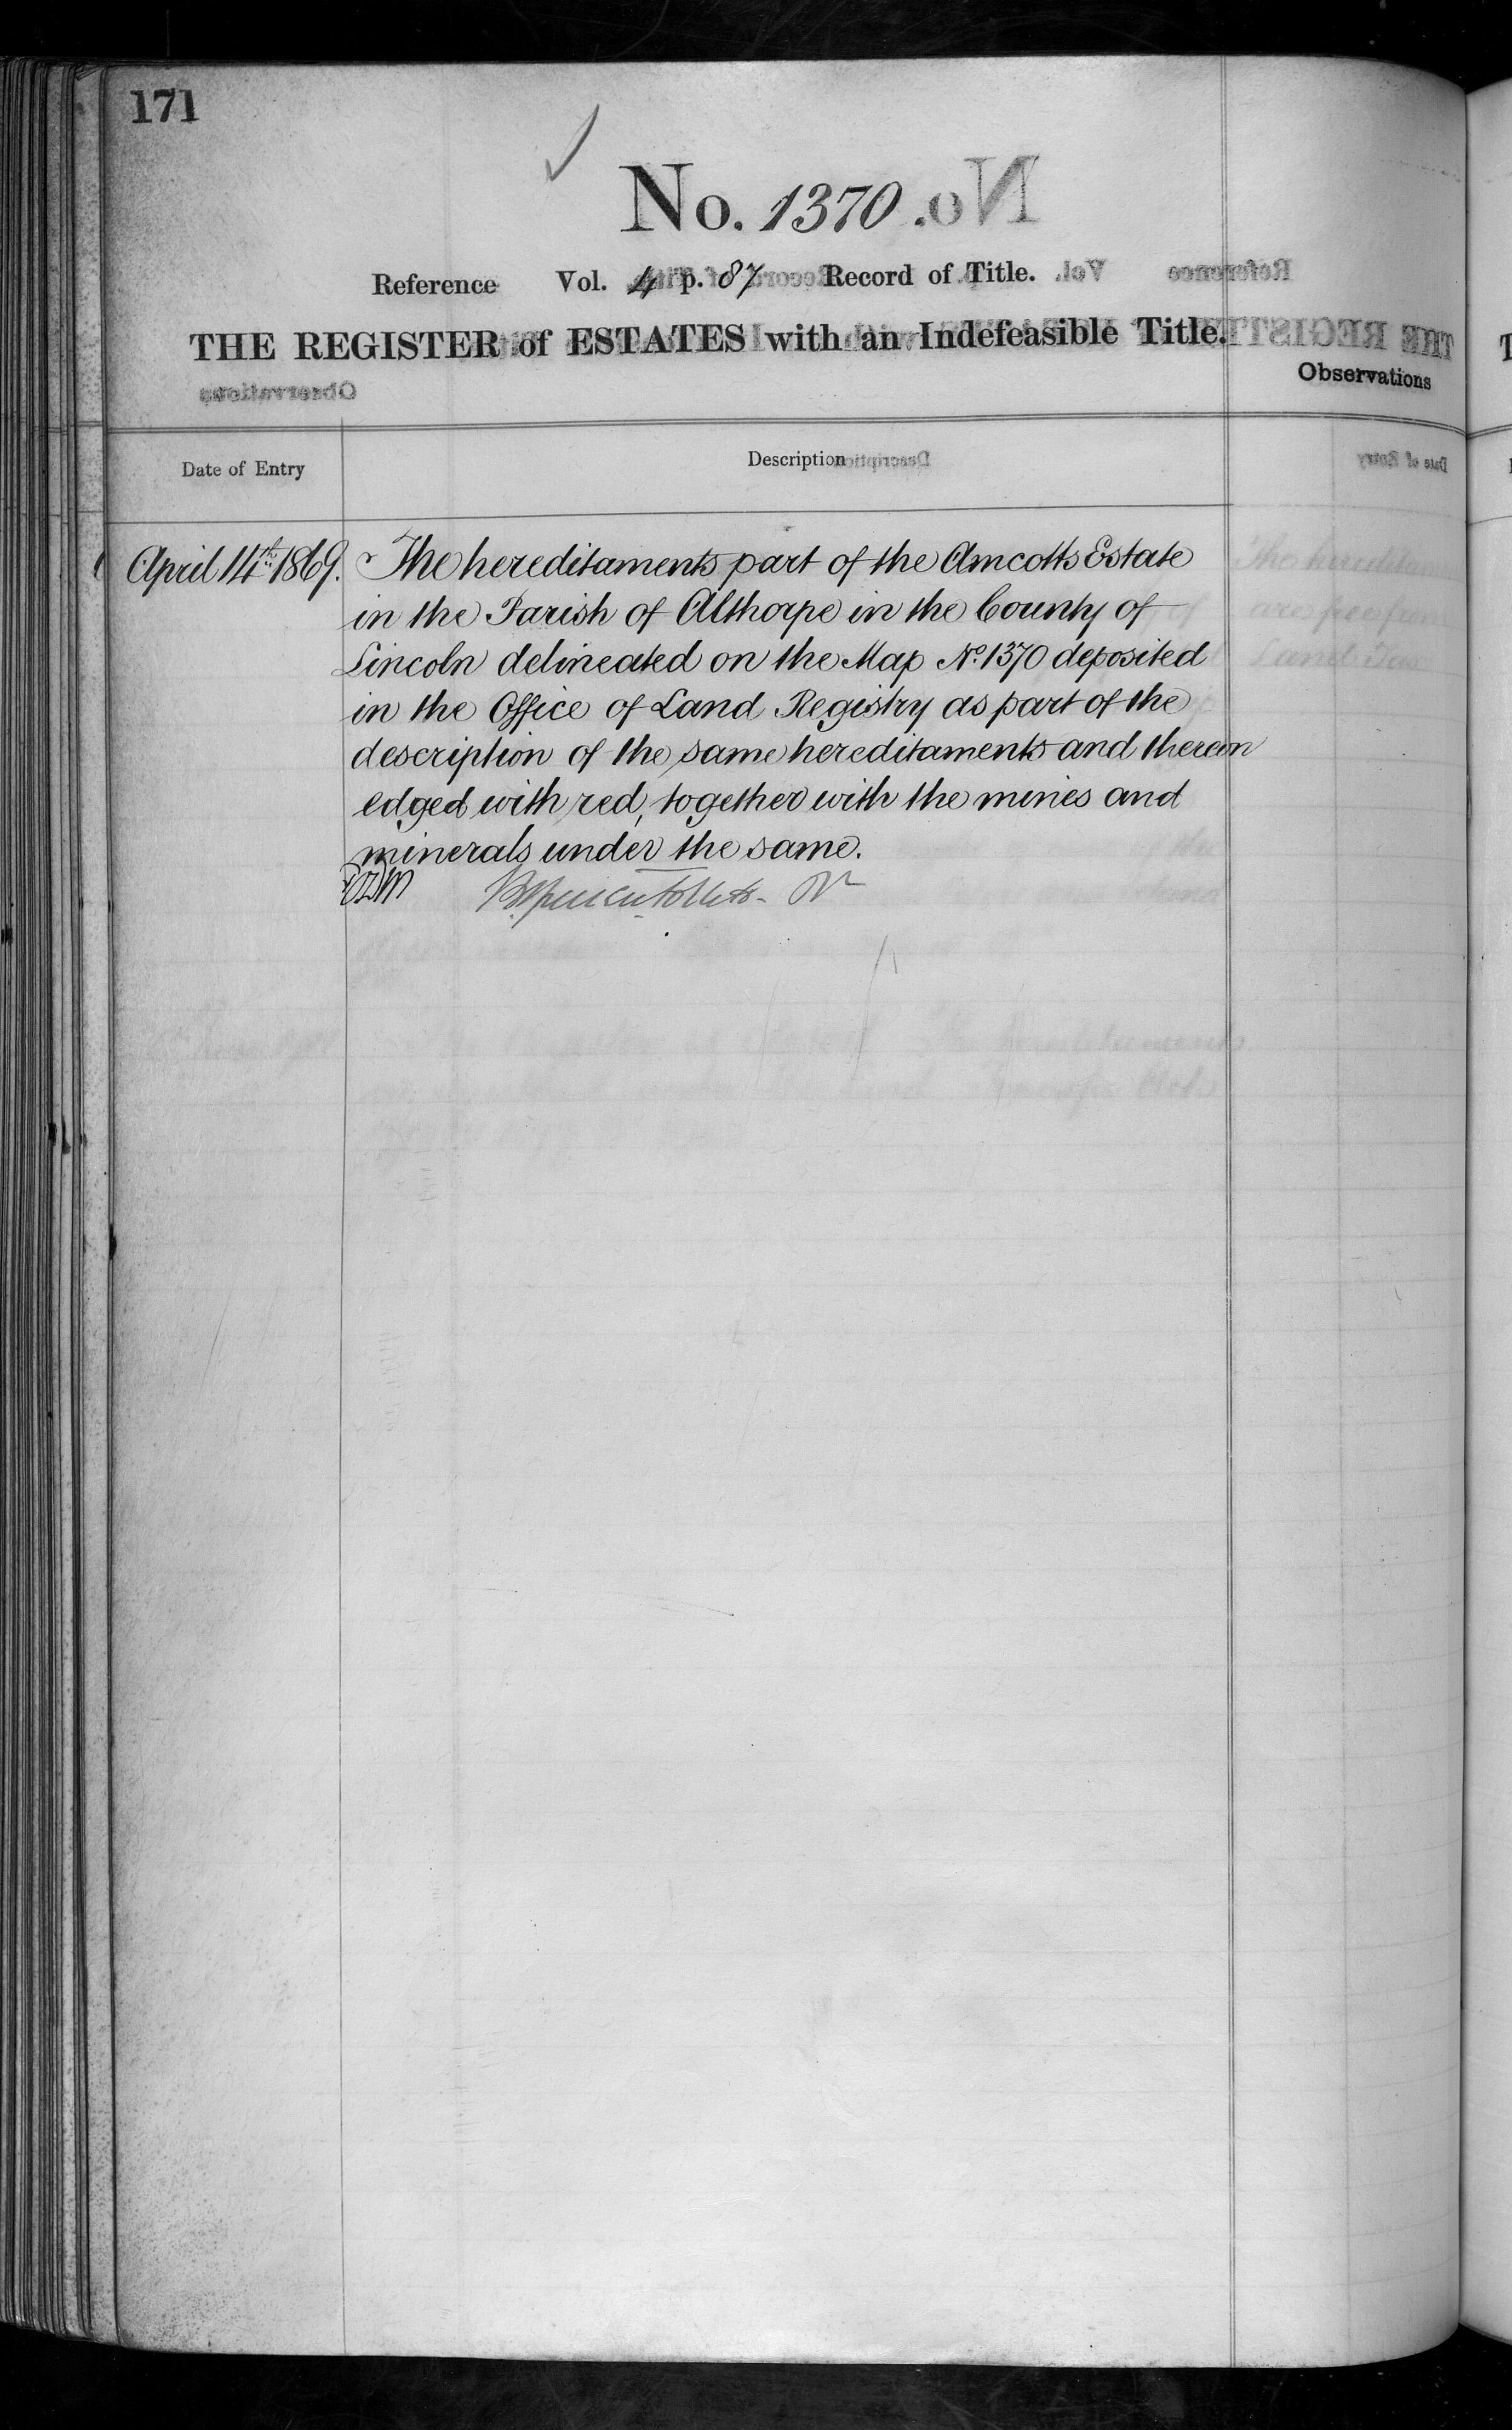 171
No. 1370
Reference Vol. 4 p. 87 Record of Title.
THE REGISTER of ESTATES with an Indefeasible Title.
Observations
Date of Entry
Description
April 14th 1869.
The hereditaments part of the Amcotts Estate
in the Parish of Althorpe in the County of
Lincoln delineated on the Map No. 1370 deposited
in the Office of Land Registry as part of the
description of the same hereditaments and thereon
edged with red, together with the mines and
minerals under the same.